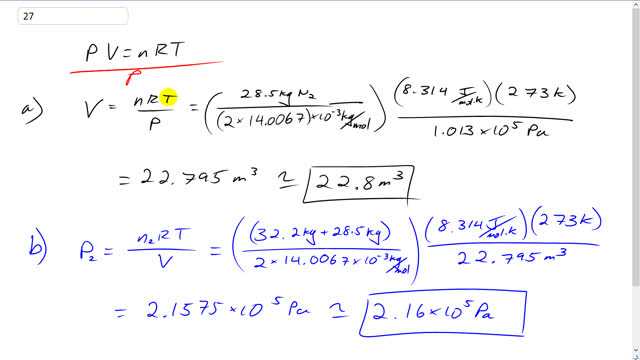 27
PV = nRT
P
a) V = nRT / P = (28.5 kg N₂ / (2 × 14.0067) × 10⁻³ kg/mol) (8.314 J/mol.k)(273k) / 1.013 × 10⁵ Pa
= 22.795 m³ ≃ 22.8 m³
b) P₂ = n₂RT / V = ((32.2 kg + 28.5 kg) / 2 × 14.0067 × 10⁻³ kg/mol) (8.314 J/mol.k)(273k) / 22.795 m³
= 2.1575 × 10⁵ Pa ≃ 2.16 × 10⁵ Pa